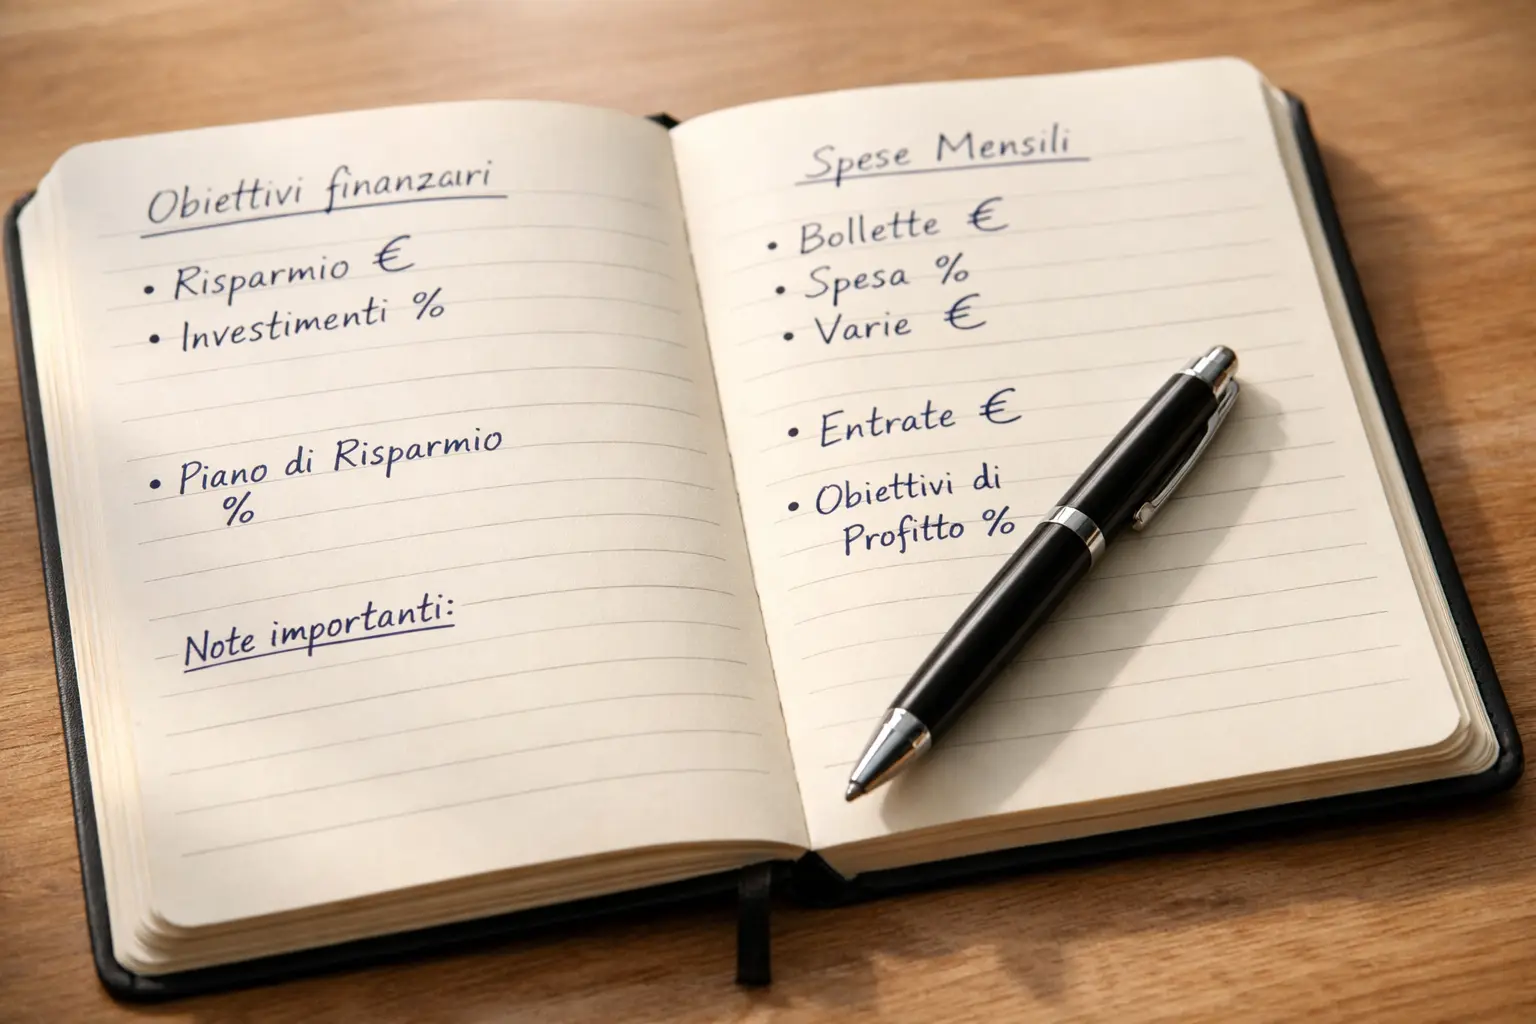 Obiettivi finanzauri
• Risparmio €
• Investimenti %
• Piano di Risparmio
%
Note importanti:
Spese Mensili
• Bollette €
• Spesa %
• Varie €
• Entrate €
• Obiettivi di
Profitto %